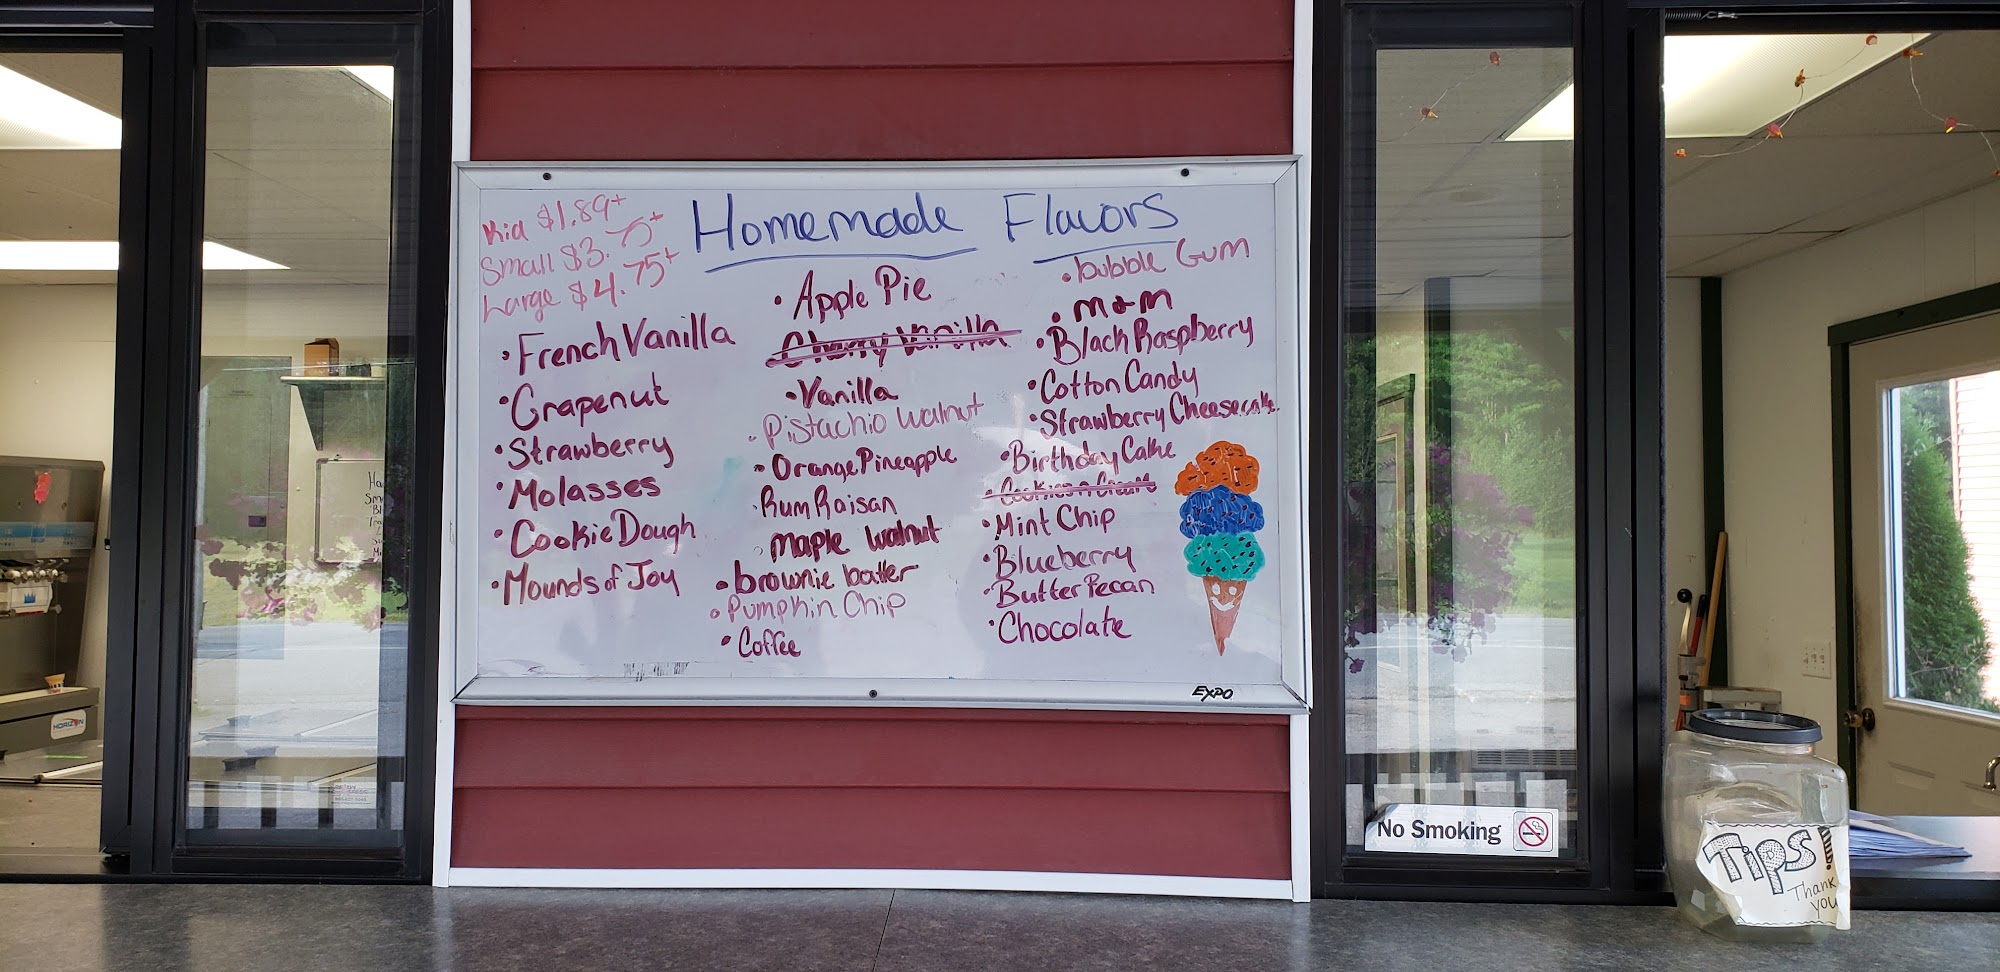 Homemade Flavors
Kid $1.89+
Small $3.75+
Large $4.75+
• French Vanilla
• Grapenut
• Strawberry
• Molasses
• Cookie Dough
• Mounds of Joy
• Apple Pie
• Cherry Vanilla
• Vanilla
• Pistachio walnut
• Orange Pineapple
• Rum Raisan
• maple walnut
• brownie batter
• Pumpkin Chip
• Coffee
• bubble Gum
• m+m
• Black Raspberry
• Cotton Candy
• Strawberry Cheesecake
• Birthday Cake
• Cookies n Cream
• Mint Chip
• Blueberry
• Butter Pecan
• Chocolate
EXPO
HORIZON
No Smoking
Tips!
Thank
you